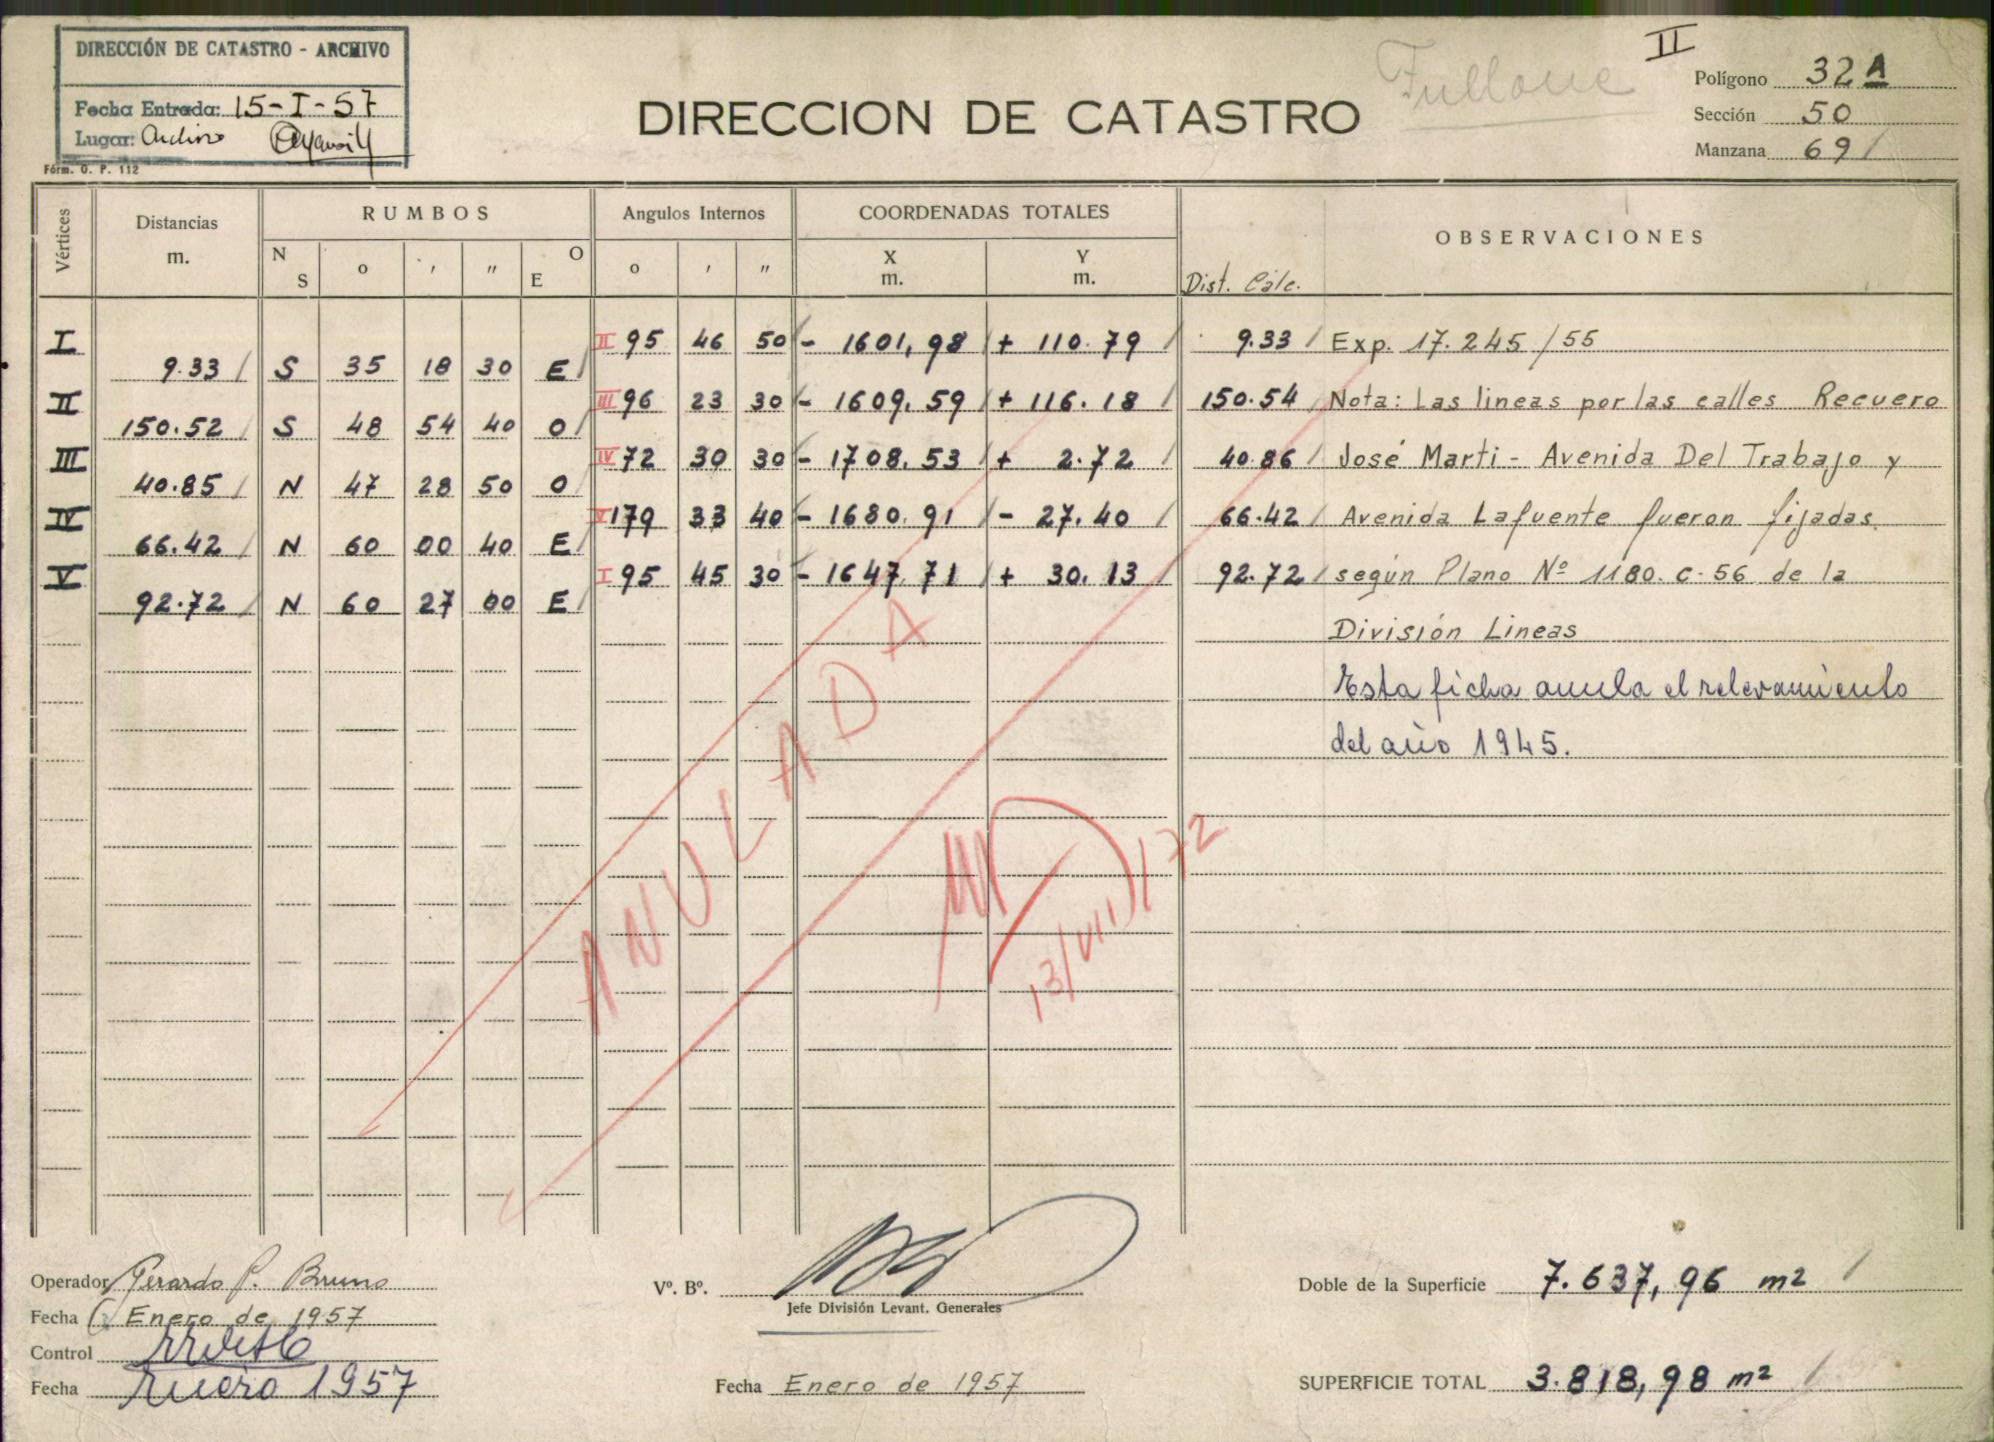 DIRECCIÓN DE CATASTRO - ARCHIVO
Fecha Entrada: 15-I-57
Lugar: Archivo
Fórm. O. P. 112
DIRECCION DE CATASTRO
II
Polígono 32A
Sección 50
Manzana 69
Vértices
Distancias
m.
RUMBOS
N S ° ' " O E
Angulos Internos
° ' "
COORDENADAS TOTALES
X
m.
Y
m.
OBSERVACIONES
Dist. Cálc.
I II 95 46 50 - 1601,98 + 110.79 9.33 Exp. 17.245/55
9.33 S 35 18 30 E
II III 96 23 30 - 1609,59 + 116.18 150.54 Nota: Las lineas por las calles Recuero
150.52 S 48 54 40 O
III IV 72 30 30 - 1708.53 + 2.72 40.86 José Marti - Avenida Del Trabajo y
40.85 N 47 28 50 O
IV V 179 33 40 - 1680.91 - 27.40 66.42 Avenida Lafuente fueron fijadas
66.42 N 60 00 40 E
V I 95 45 30 - 1647,71 + 30.13 92.72 según Plano Nº 1180.C.56 de la
92.72 N 60 27 00 E
División Lineas
Esta ficha anula el relevamiento
del año 1945.
ANULADA
13/VII/72
Operador Gerardo P. Bruno
Fecha Enero de 1957
Control
Fecha Enero 1957
Vº. Bº.
Jefe División Levant. Generales
Fecha Enero de 1957
Doble de la Superficie 7.637,96 m2
SUPERFICIE TOTAL 3.818,98 m2